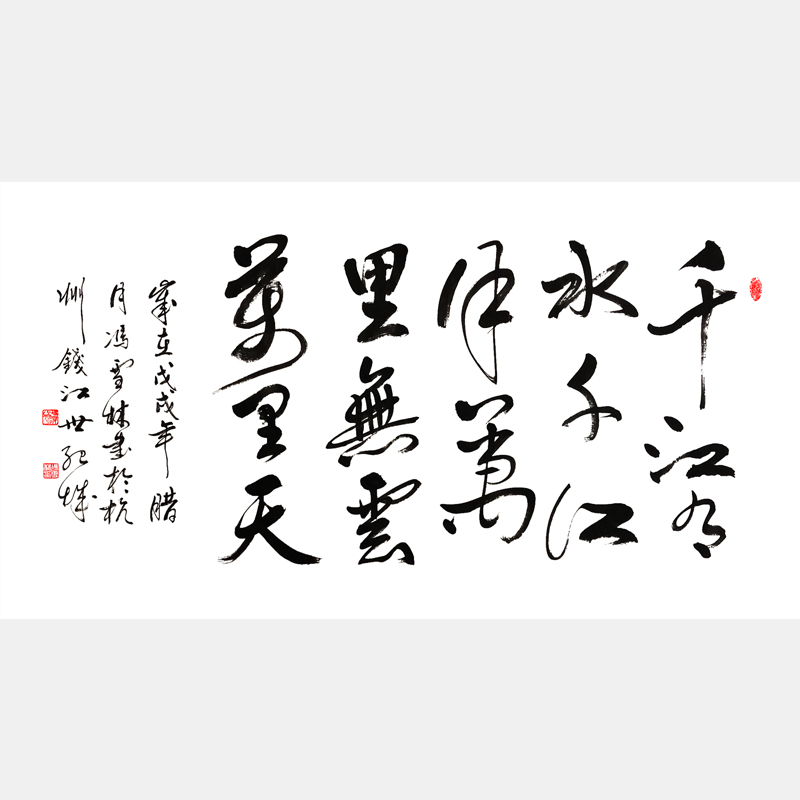 千江有
水千江
月萬
里無雲
萬里天
歲在戊戌年腊
月馮雪林書於杭
州錢江世紀城